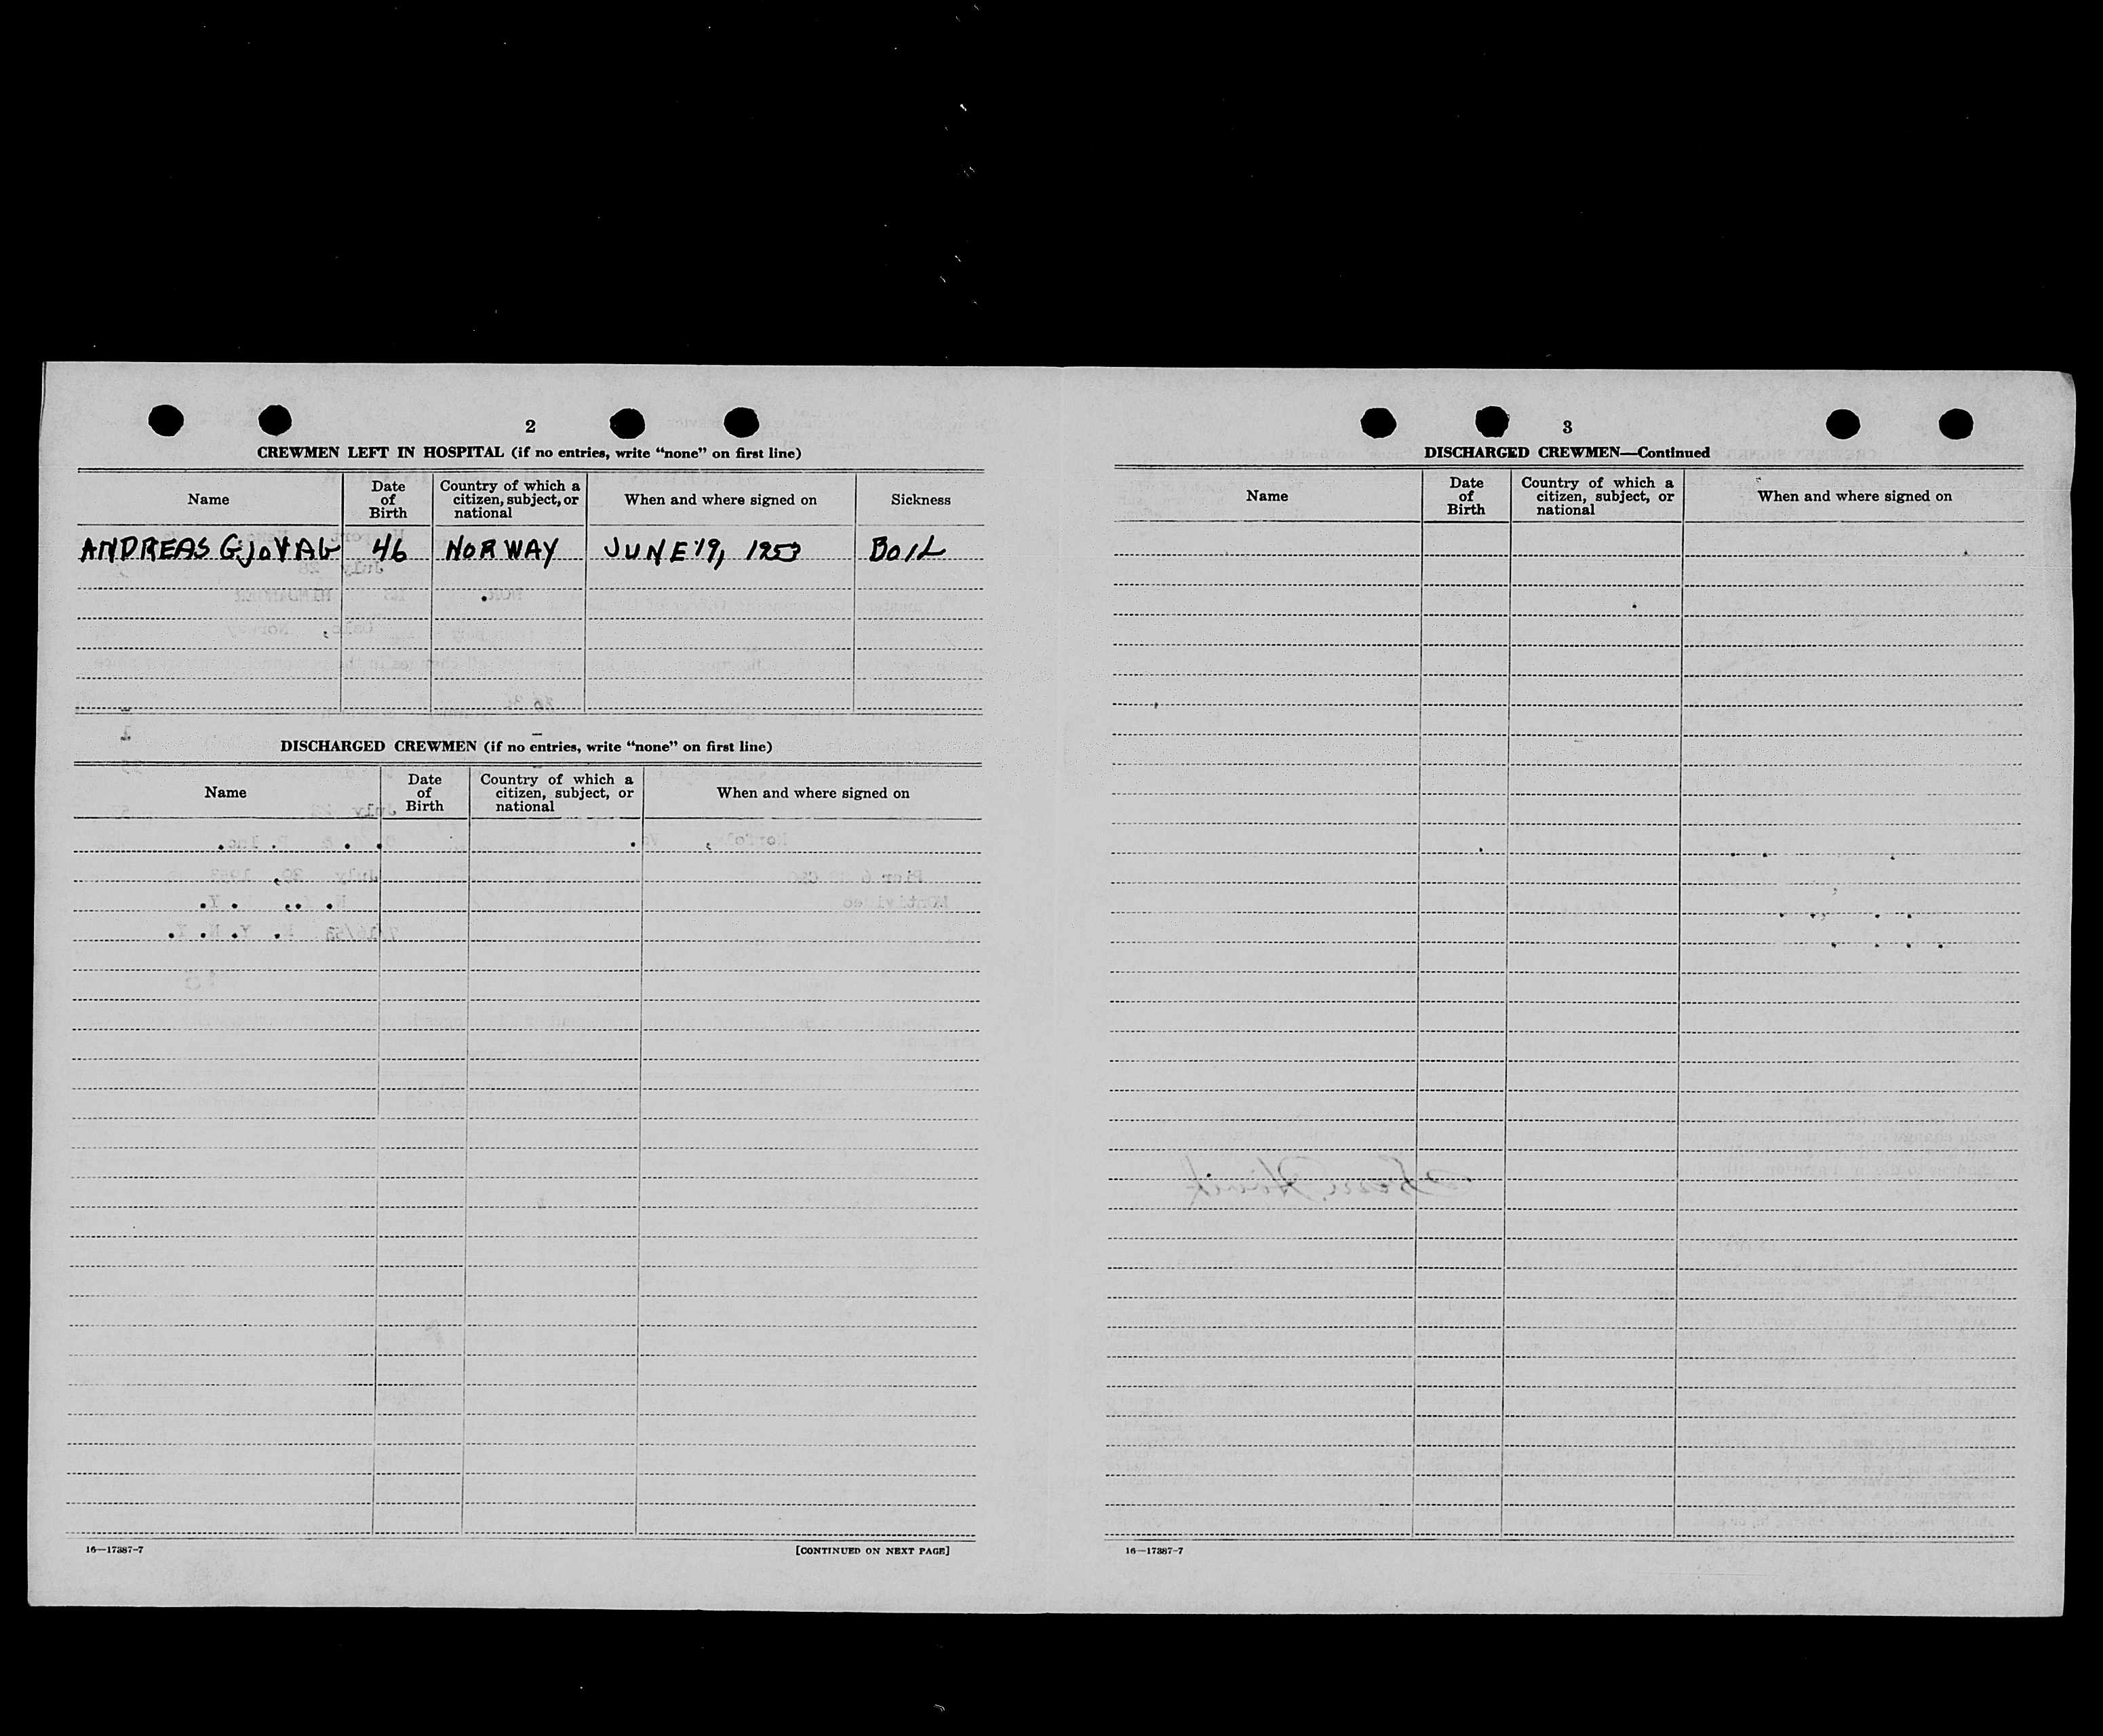 2
CREWMEN LEFT IN HOSPITAL (if no entries, write “none” on first line)
Name
Date of Birth
Country of which a citizen, subject, or national
When and where signed on
Sickness
ANDREAS GJOVAG 46 NORWAY JUNE 19, 1953 BOIL
DISCHARGED CREWMEN (if no entries, write “none” on first line)
Name
Date of Birth
Country of which a citizen, subject, or national
When and where signed on
16—17387-7
[CONTINUED ON NEXT PAGE]
3
DISCHARGED CREWMEN—Continued
Name
Date of Birth
Country of which a citizen, subject, or national
When and where signed on
16—17387-7